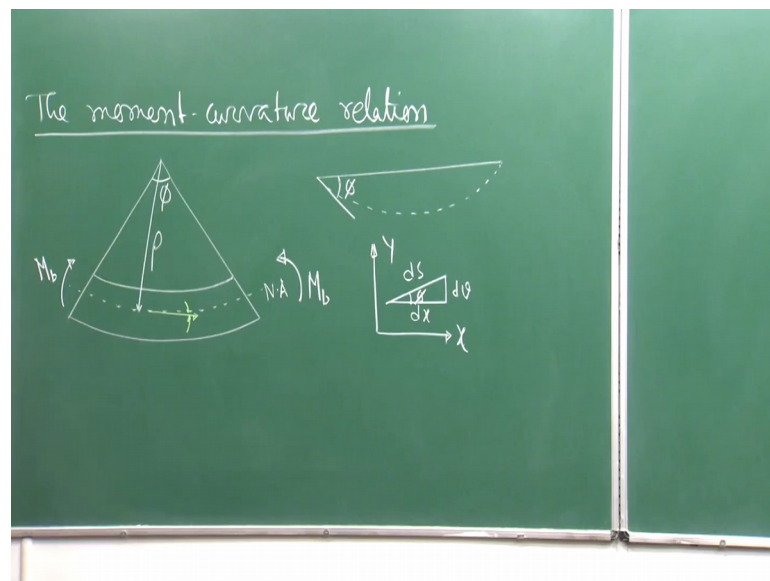 The moment-curvature relation
φ
φ
ρ
Y
M_b
N.A
M_b
ds
φ
dv
dx
X
y